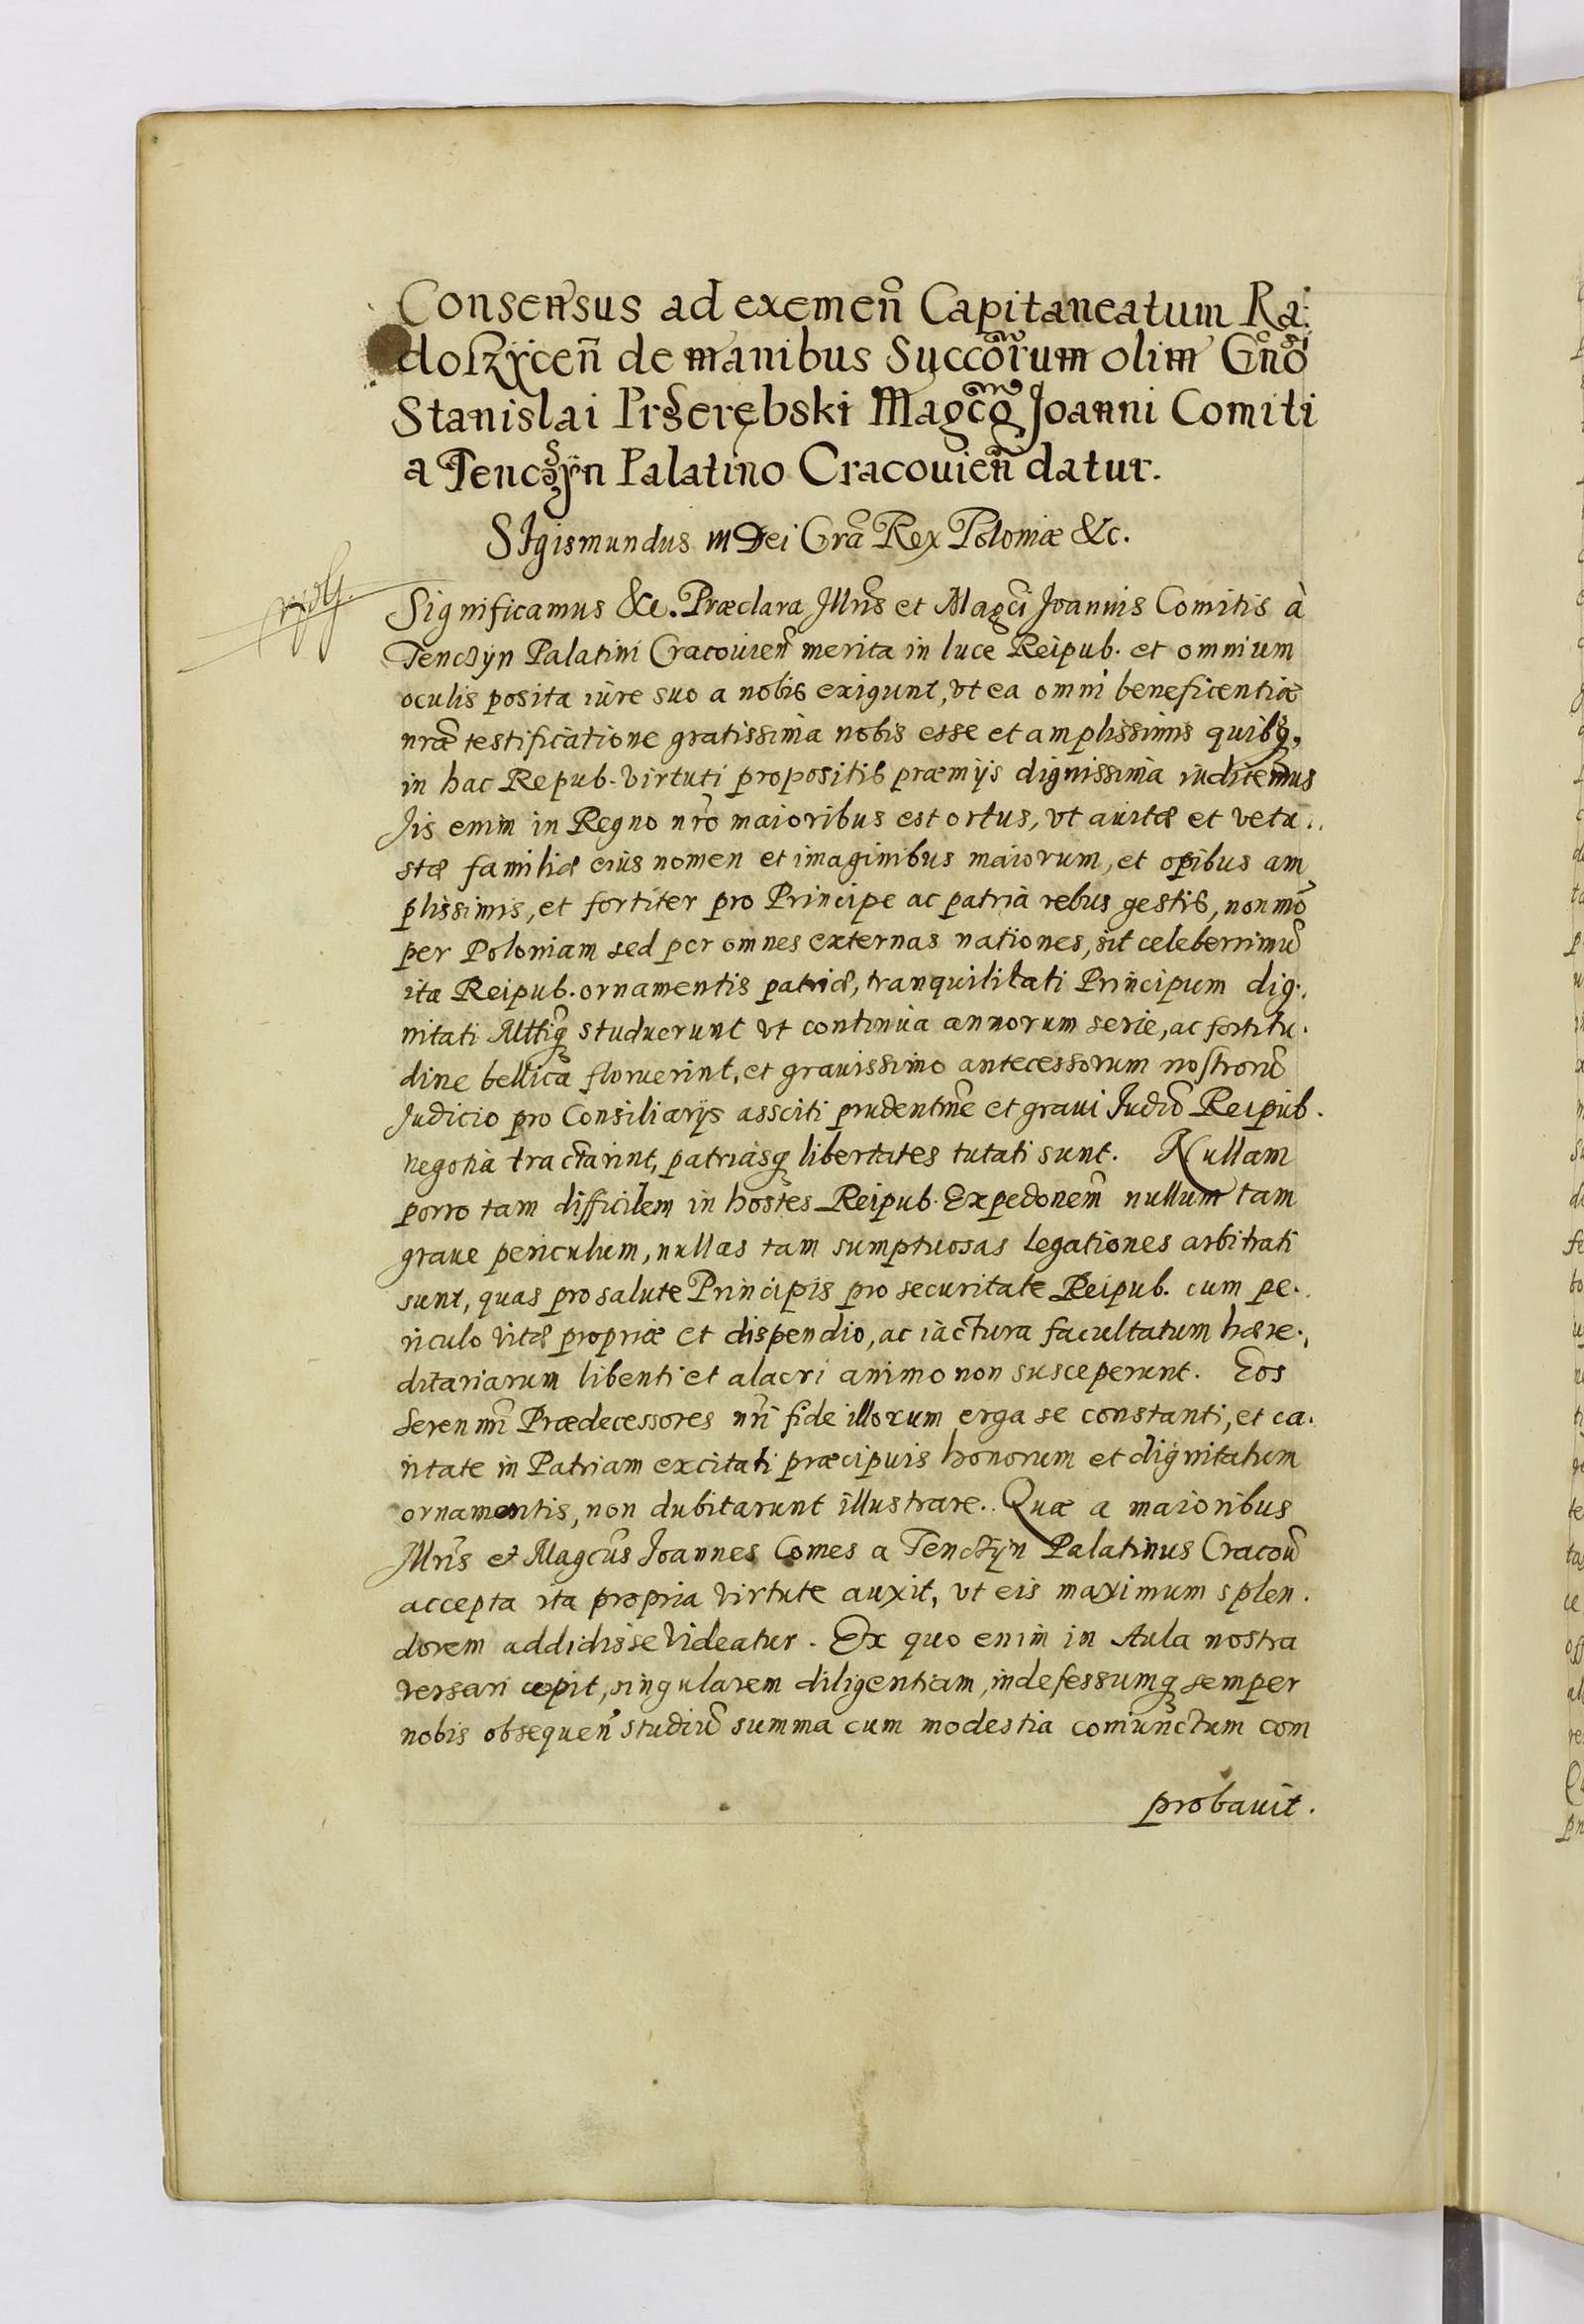 Consensus ad exemeñ Capitaneatum Ra:
doszÿceñ de manibus Succõrum olim Gñosi
Stanislai Przerębski Magc̃o Joanni Comiti
a Tenczÿn Palatino Cracouieñ datur.
SIgismundus III Dei Grã Rex Poloniæ &c.
Significamus &c. Præclara Illr̃is et Magc̃i Joannis Comitis à
Tenczÿn Palatini Cracouieñ merita in luce Reipub. et omnium
oculis posita iure suo a nobis exigunt, vt ea omni beneficentiæ
nræ̃ testificatione gratissima nobis esse et amplissimis quibq,
in hac Repub. virtuti propositis præmijs dignissima iudicemus
Jis enim in Regno nrõ maioribus est ortus, vt auitæ et vetu..
stæ familiæ eius nomen et imaginibus maiorum, et opibus am
plissimis, et fortiter pro Principe ac patria rebus gestis, non mõ
per Poloniam sed per omnes externas nationes, sit celeberrimũ
ita Reipub. ornamentis patriæ, tranquilitati Principum dig..
nitati Altiq̃ studuerunt vt continua annorum serie, ac fortitu.
dine bellica floruerint, et grauissimo antecessorum nostrorũ
Judicio pro Consiliarijs assciti prudentm̃e et graui Judiõ Reipub.
negotia tractarint, patriasq libertates tutati sunt. Nullam
porro tam difficilem in hostes Reipub. Expedonem̃ nullum tam
graue periculum, nullas tam sumptuosas legationes arbitrati
sunt, quas pro salute Principis pro securitate Reipub. cum pe..
riculo vitæ propriæ et dispendio, ac iactura facultatum hære.,
ditariarum libenti et alacri animo non susceperunt. Eos
Seren mĩ Prædecessores nr̃i fide illorum erga se constanti, et ca.
ritate in Patriam excitati præcipuis honorum et dignitatum
ornamentis, non dubitarunt illustrare. Quæ a maioribus
Illr̃is et Magc̃us Joannes Comes a Tenczÿn Palatinus Cracoũ
accepta ita propria virtute auxit, vt eis maximum splen.
dorem addidisse videatur. Ex quo enim in Aula nostra
versari cepit, singularem diligentiam, indefessumq semper
nobis obsequeñ studiũ summa cum modestia coniunctum com
probauit.